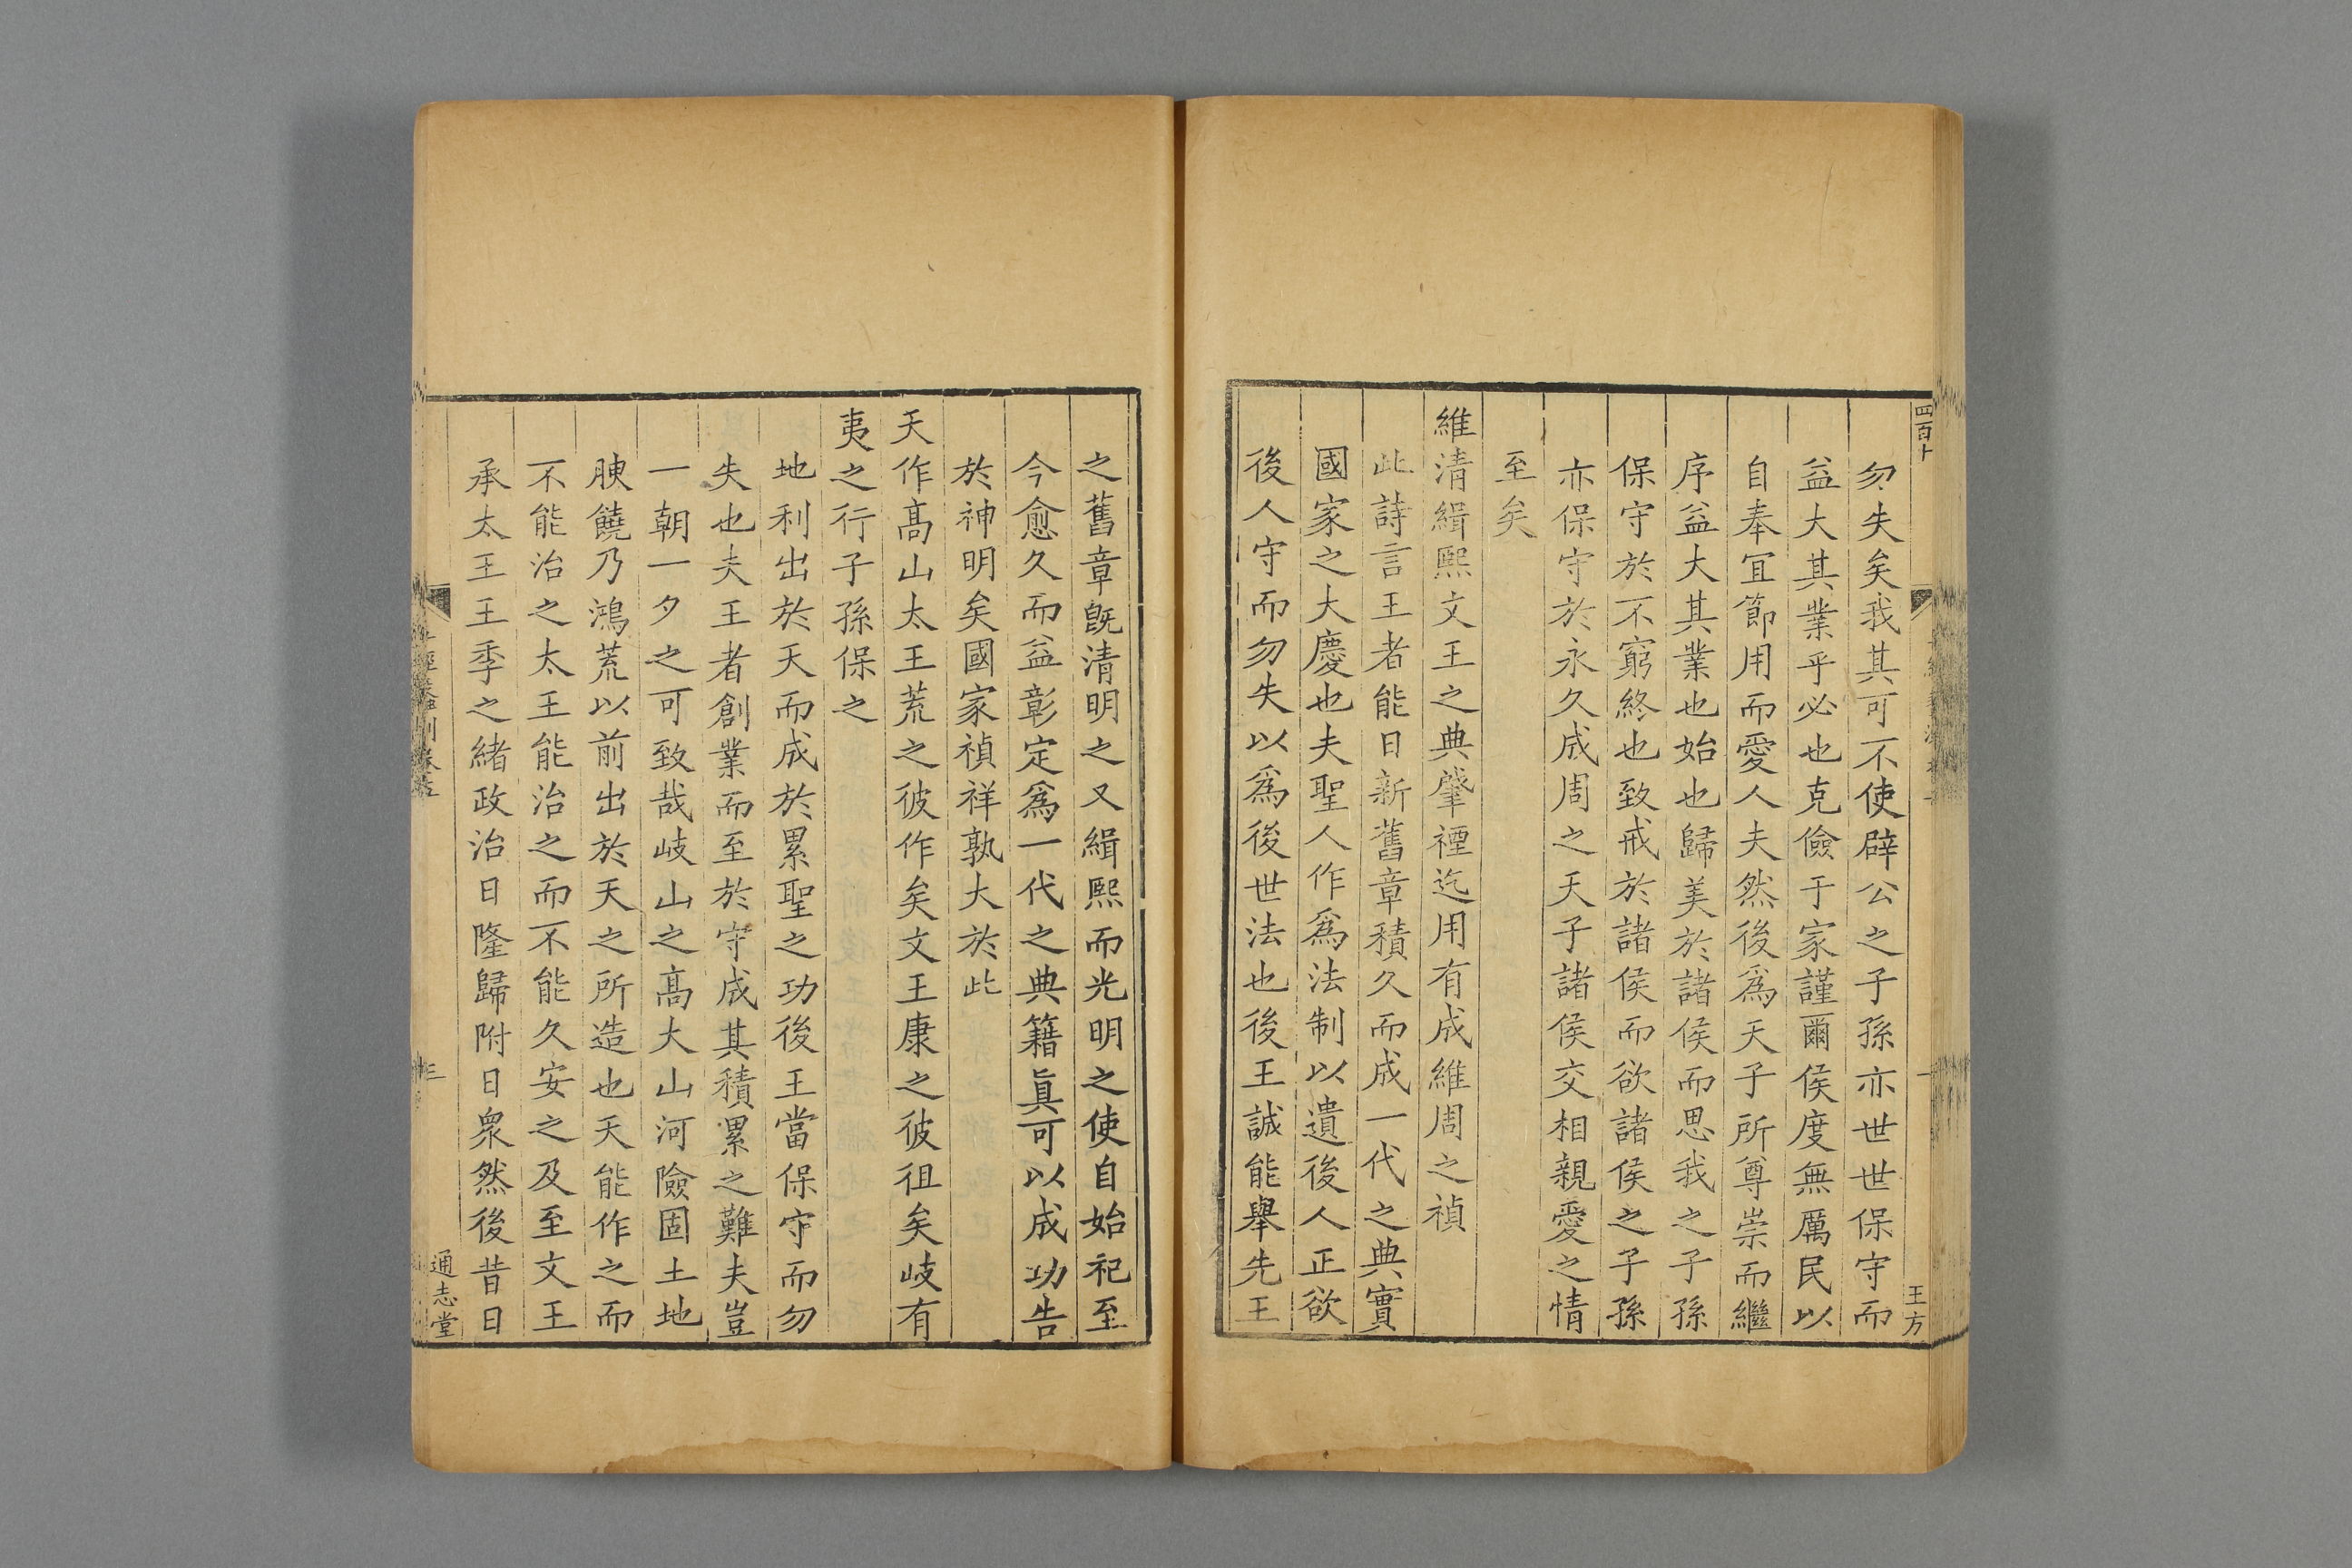 四百十
王方
勿失矣我其可不使辟公之子孫亦世世保守而
益大其業乎必也克儉于家謹爾侯度無厲民以
自奉宜節用而愛人夫然後爲天子所尊崇而繼
序益大其業也始也歸美於諸侯而思我之子孫
保守於不窮終也致戒於諸侯而欲諸侯之子孫
亦保守於永久成周之天子諸侯交相親愛之情
至矣
維清緝熙文王之典肇禋迄用有成維周之禎
此詩言王者能日新舊章積久而成一代之典實
國家之大慶也夫聖人作爲法制以遺後人正欲
後人守而勿失以爲後世法也後王誠能舉先王
之舊章旣清明之又緝熙而光明之使自始祀至
今愈久而益彰定爲一代之典籍眞可以成功告
於神明矣國家禎祥孰大於此
天作高山太王荒之彼作矣文王康之彼徂矣岐有
夷之行子孫保之
地利出於天而成於累聖之功後王當保守而勿
失也夫王者創業而至於守成其積累之難夫豈
一朝一夕之可致哉岐山之高大山河險固土地
腴饒乃鴻荒以前出於天之所造也天能作之而
不能治之太王能治之而不能久安之及至文王
承太王王季之緒政治日隆歸附日衆然後昔日
十三
通志堂